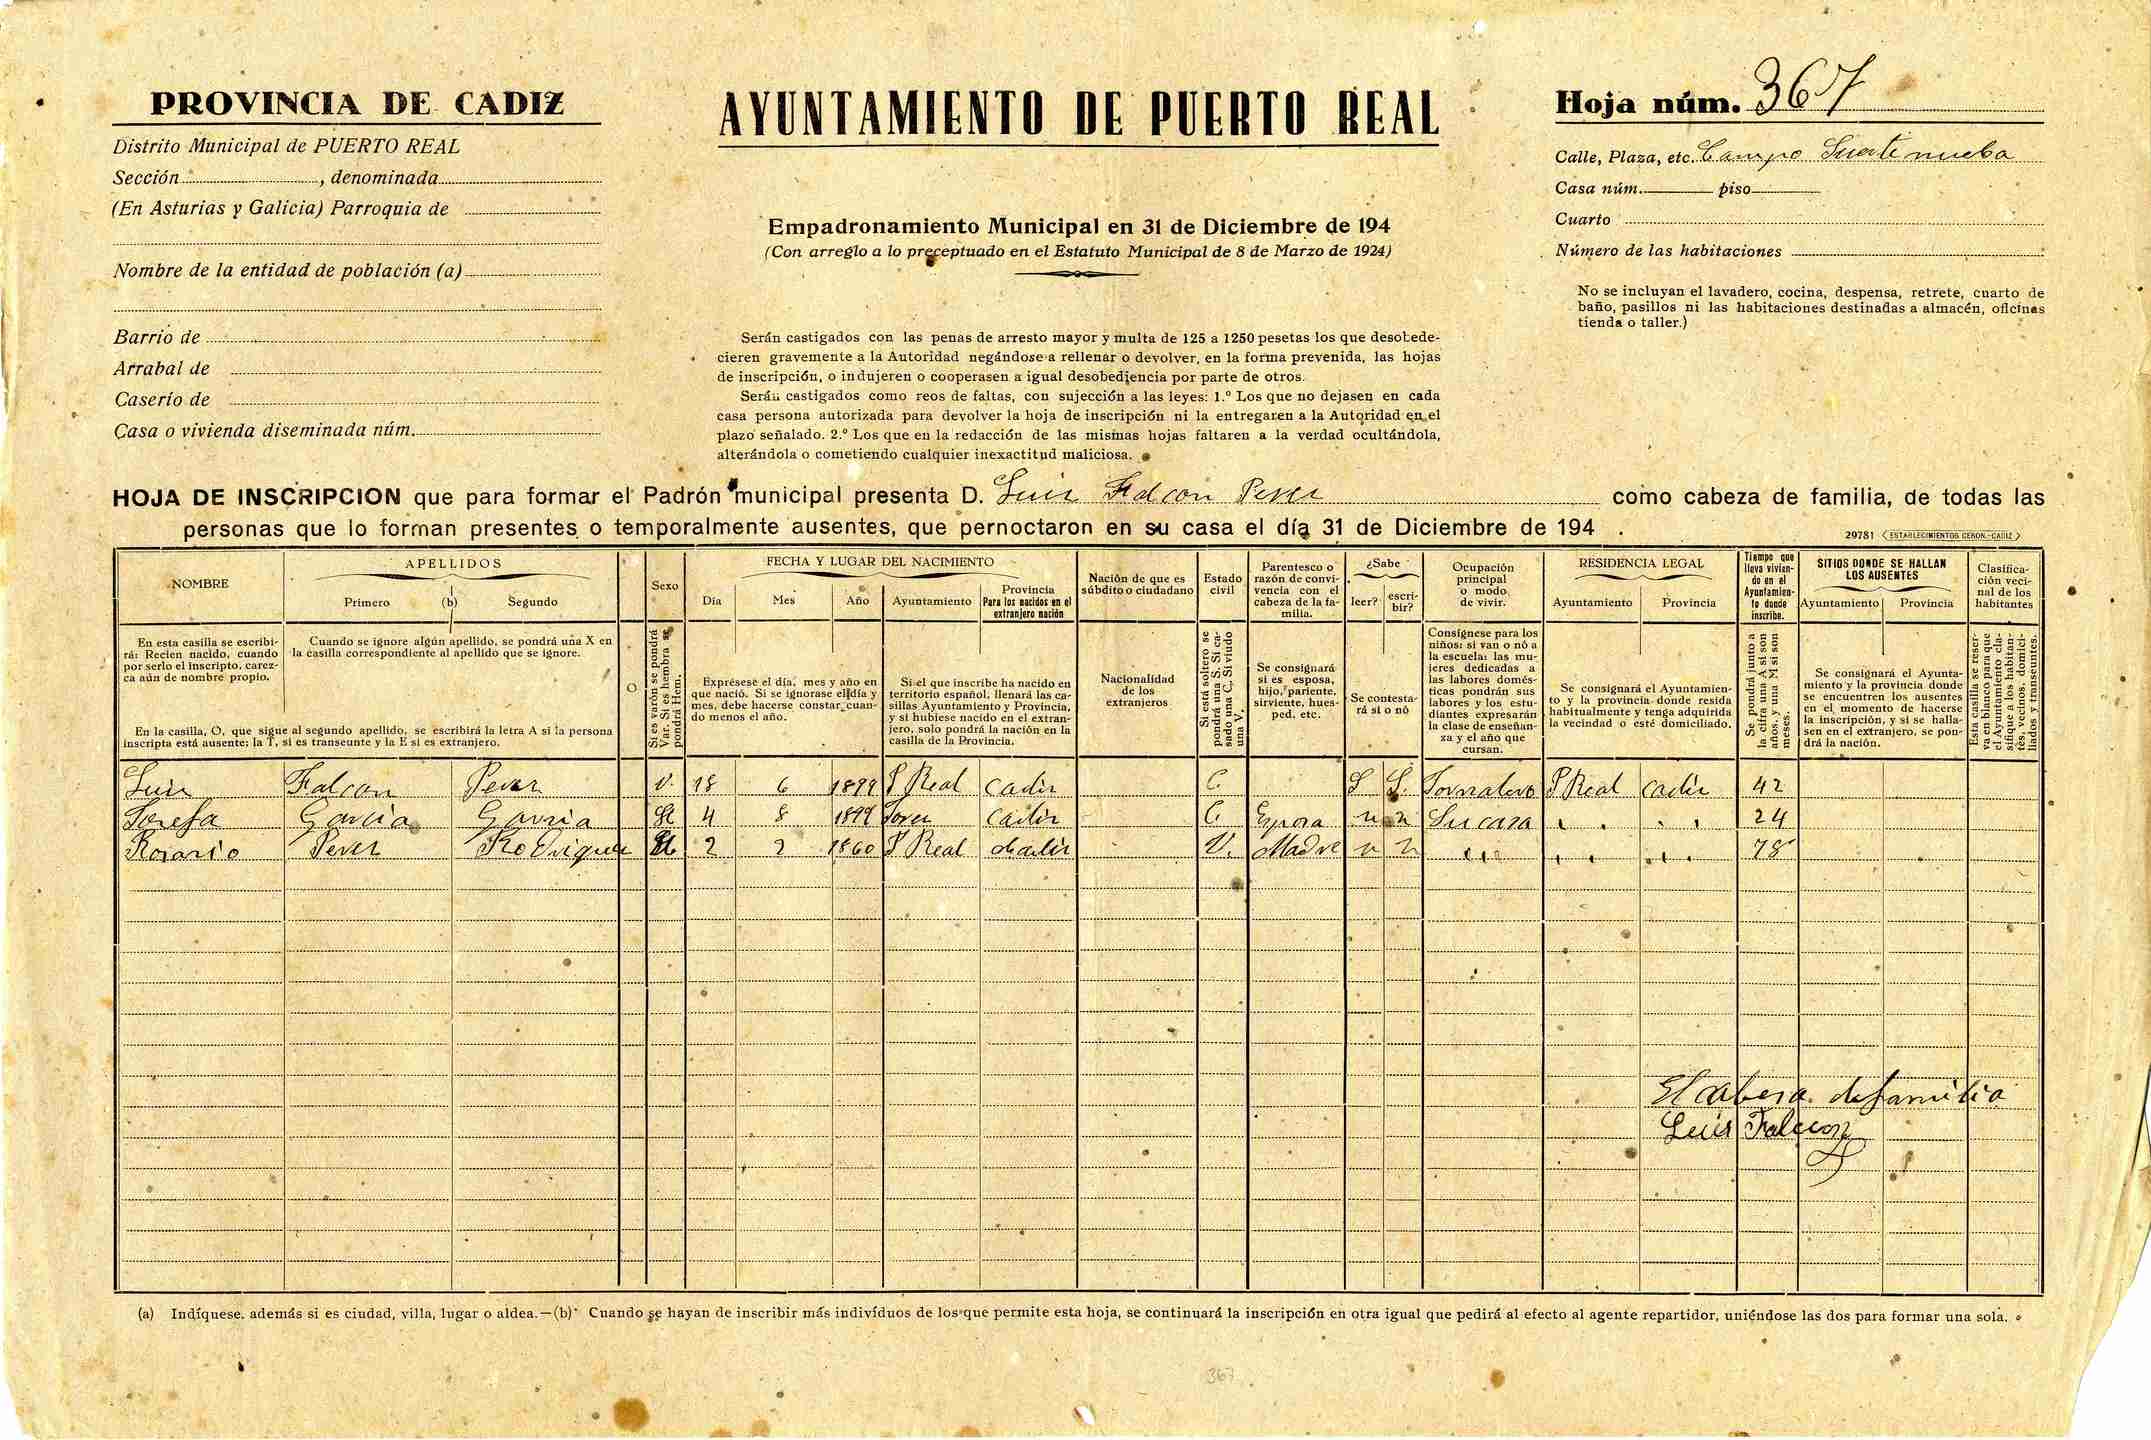 PROVINCIA DE CADIZ
Distrito Municipal de PUERTO REAL
Sección , denominada
(En Asturias y Galicia) Parroquia de
Nombre de la entidad de población (a)
Barrio de
Arrabal de
Caserío de
Casa o vivienda diseminada núm.
AYUNTAMIENTO DE PUERTO REAL
Empadronamiento Municipal en 31 de Diciembre de 194
(Con arreglo a lo preceptuado en el Estatuto Municipal de 8 de Marzo de 1924)
Serán castigados con las penas de arresto mayor y multa de 125 a 1250 pesetas los que desobede-
cieren gravemente a la Autoridad negándose a rellenar o devolver, en la forma prevenida, las hojas
de inscripción, o indujeren o cooperasen a igual desobediencia por parte de otros.
Serán castigados como reos de faltas, con sujección a las leyes: 1.º Los que no dejasen en cada
casa persona autorizada para devolver la hoja de inscripción ni la entregaren a la Autoridad en el
plazo señalado. 2.º Los que en la redacción de las mismas hojas faltaren a la verdad ocultándola,
alterándola o cometiendo cualquier inexactitud maliciosa.
Hoja núm. 367
Calle, Plaza, etc. Campo Suerte nueba
Casa núm. piso
Cuarto
Número de las habitaciones
No se incluyan el lavadero, cocina, despensa, retrete, cuarto de
baño, pasillos ni las habitaciones destinadas a almacén, oficinas
tienda o taller.)
HOJA DE INSCRIPCION que para formar el Padrón municipal presenta D. Luis Falcon Perez como cabeza de familia, de todas las
personas que lo forman presentes o temporalmente ausentes, que pernoctaron en su casa el día 31 de Diciembre de 194 .
29781 ESTABLECIMIENTOS CERON.-CADIZ
NOMBRE
En esta casilla se escribi-
rá: Recien nacido, cuando
por serlo el inscripto, carez-
ca aún de nombre propio.
APELLIDOS
Primero (b) Segundo
Cuando se ignore algún apellido, se pondrá una X en
la casilla correspondiente al apellido que se ignore.
En la casilla, O, que sigue al segundo apellido, se escribirá la letra A si la persona
inscripta está ausente; la T, si es transeunte y la E si es extranjero.
O
Sexo
Si es varón se pondrá
Var. Si es hembra se
pondrá Hem.
FECHA Y LUGAR DEL NACIMIENTO
Día Mes Año Ayuntamiento Provincia
Para los nacidos en el
extranjero nación
Exprésese el día, mes y año en
que nació. Si se ignorase el día y
mes, debe hacerse constar cuan-
do menos el año.
Si el que inscribe ha nacido en
territorio español, llenará las ca-
sillas Ayuntamiento y Provincia,
y si hubiese nacido en el extran-
jero, solo pondrá la nación en la
casilla de la Provincia.
Nación de que es
súbdito o ciudadano
Nacionalidad
de los
extranjeros
Estado
civil
Si está soltero se
pondrá una S. Si ca-
sado una C. Si viudo
una V.
Parentesco o
razón de convi-
vencia con el
cabeza de la fa-
milia.
Se consignará
si es esposa,
hijo, pariente,
sirviente, hues-
ped, etc.
¿Sabe
leer? escri-
bir?
Se contesta-
rá si o nó
Ocupación
principal
o modo
de vivir.
Consígnese para los
niños: si van o nó a
la escuela: las mu-
jeres dedicadas a
las labores domés-
ticas pondrán sus
labores y los estu-
diantes expresarán
la clase de enseñan-
za y el año que
cursan.
RESIDENCIA LEGAL
Ayuntamiento Provincia
Se consignará el Ayuntamien-
to y la provincia donde resida
habitualmente y tenga adquirida
la vecindad o esté domiciliado.
Tiempo que
lleva vivien-
do en el
Ayuntamien-
to donde
inscribe.
Se pondrá junto a
la cifra una A si son
años, y una M si son
meses.
SITIOS DONDE SE HALLAN
LOS AUSENTES
Ayuntamiento Provincia
Se consignará el Ayunta-
miento y la provincia donde
se encuentren los ausentes
en el momento de hacerse
la inscripción, y si se halla-
sen en el extranjero, se pon-
drá la nación.
Clasifica-
ción veci-
nal de los
habitantes
Esta casilla se reser-
va en blanco para que
el Ayuntamiento cla-
sifique a los habitan-
tes, vecinos, domici-
liados y transeuntes.
Luis Falcon Perez V. 18 6 1899 P Real Cadiz C S S. Tornalero P Real Cadiz 42
Josefa Garcia Garcia H 4 8 1899 Jerez Cadiz C Esposa n n Su casa " " " " 24
Rosario Perez Rodriguez H 2 2 1860 P Real Cadiz V. Madre n n " " " " " " 78
El cabesa de familia
Luis Falcon
(a) Indíquese. además si es ciudad, villa, lugar o aldea.—(b) Cuando se hayan de inscribir más indivíduos de los que permite esta hoja, se continuará la inscripción en otra igual que pedirá al efecto al agente repartidor, uniéndose las dos para formar una sola.
367